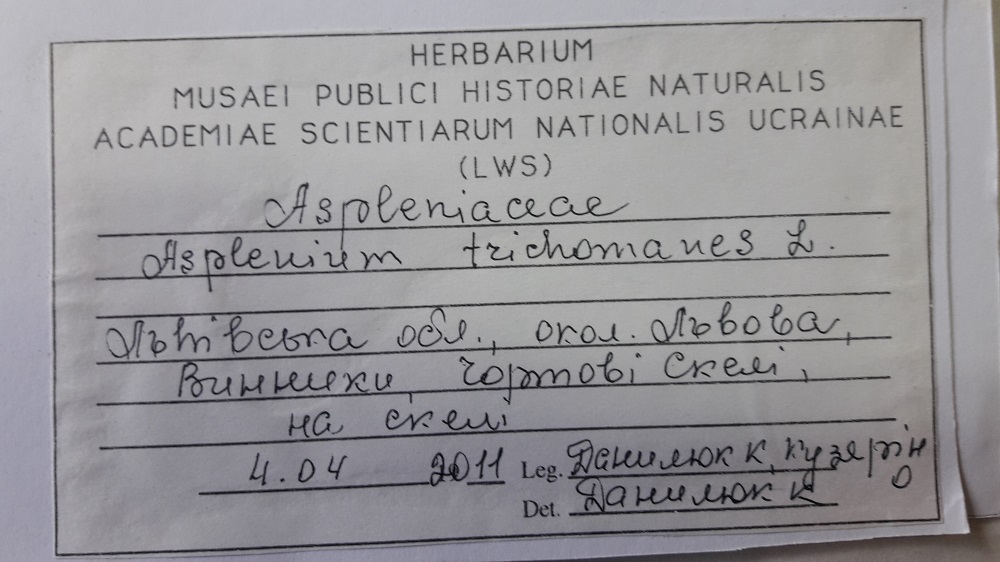 HERBARIUM
MUSAEI PUBLICI HISTORIAE NATURALIS
ACADEMIAE SCIENTIARUM NATIONALIS UCRAINAE
(LWS)
Aspleniaceae
Asplenium trichomanes L.
Львівська обл., окол. Львова,
Винники Чортові скелі,
на скелі
4.04 2011 Leg. Данилюк К, Кузярін О
Det. Данилюк К